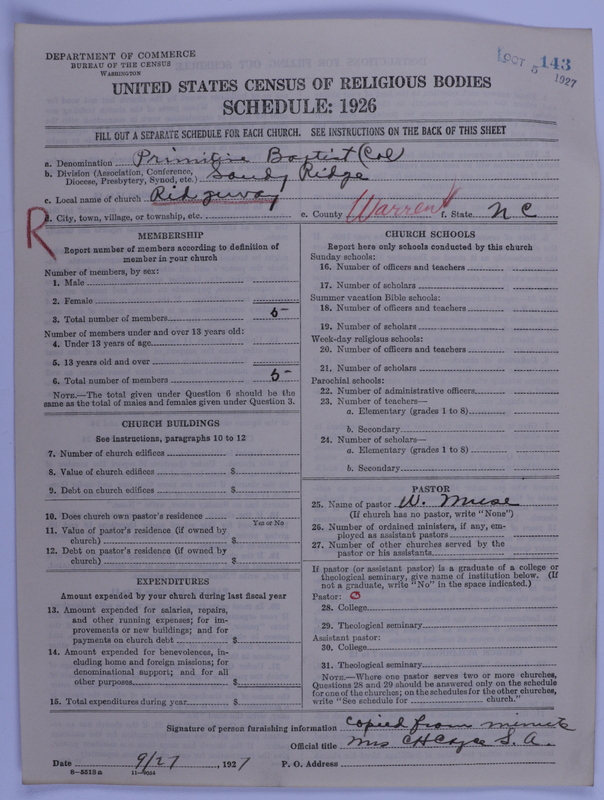 DEPARTMENT OF COMMERCE
BUREAU OF THE CENSUS
WASHINGTON
OCT 5 1927
143
UNITED STATES CENSUS OF RELIGIOUS BODIES
SCHEDULE: 1926
FILL OUT A SEPARATE SCHEDULE FOR EACH CHURCH. SEE INSTRUCTIONS ON THE BACK OF THIS SHEET
a. Denomination Primitive Baptist (Col)
b. Division (Association, Conference, Diocese, Presbytery, Synod, etc.) Sandy Ridge
c. Local name of church Ridgeway
d. City, town, village, or township, etc. e. County Warren f. State N C
R
MEMBERSHIP
Report number of members according to definition of
member in your church
Number of members, by sex:
1. Male
2. Female
3. Total number of members 5
Number of members under and over 13 years old:
4. Under 13 years of age
5. 13 years old and over
6. Total number of members 5
NOTE.—The total given under Question 6 should be the
same as the total of males and females given under Question 3.
CHURCH BUILDINGS
See instructions, paragraphs 10 to 12
7. Number of church edifices
8. Value of church edifices $
9. Debt on church edifices $
10. Does church own pastor's residence
Yes or No
11. Value of pastor's residence (if owned by
church) $
12. Debt on pastor's residence (if owned by
church) $
EXPENDITURES
Amount expended by your church during last fiscal year
13. Amount expended for salaries, repairs,
and other running expenses; for im-
provements or new buildings; and for
payments on church debt $
14. Amount expended for benevolences, in-
cluding home and foreign missions; for
denominational support; and for all
other purposes $
15. Total expenditures during year $
CHURCH SCHOOLS
Report here only schools conducted by this church
Sunday schools:
16. Number of officers and teachers
17. Number of scholars
Summer vacation Bible schools:
18. Number of officers and teachers
19. Number of scholars
Week-day religious schools:
20. Number of officers and teachers
21. Number of scholars
Parochial schools:
22. Number of administrative officers
23. Number of teachers—
a. Elementary (grades 1 to 8)
b. Secondary
24. Number of scholars—
a. Elementary (grades 1 to 8)
b. Secondary
PASTOR
25. Name of pastor W. Muse
(If church has no pastor, write "None")
26. Number of ordained ministers, if any, em-
ployed as assistant pastors
27. Number of other churches served by the
pastor or his assistants
If pastor (or assistant pastor) is a graduate of a college or
theological seminary, give name of institution below. (If
not a graduate, write "No" in the space indicated.)
Pastor:
28. College
29. Theological seminary
Assistant pastor:
30. College
31. Theological seminary
NOTE.—Where one pastor serves two or more churches,
Questions 28 and 29 should be answered only on the schedule
for one of the churches; on the schedules for the other churches,
write "See schedule for church."
Signature of person furnishing information copied from minute
Official title Mrs C H Cayce S. A.
Date 9/27, 1927 P. O. Address
8-5513a 11-9624